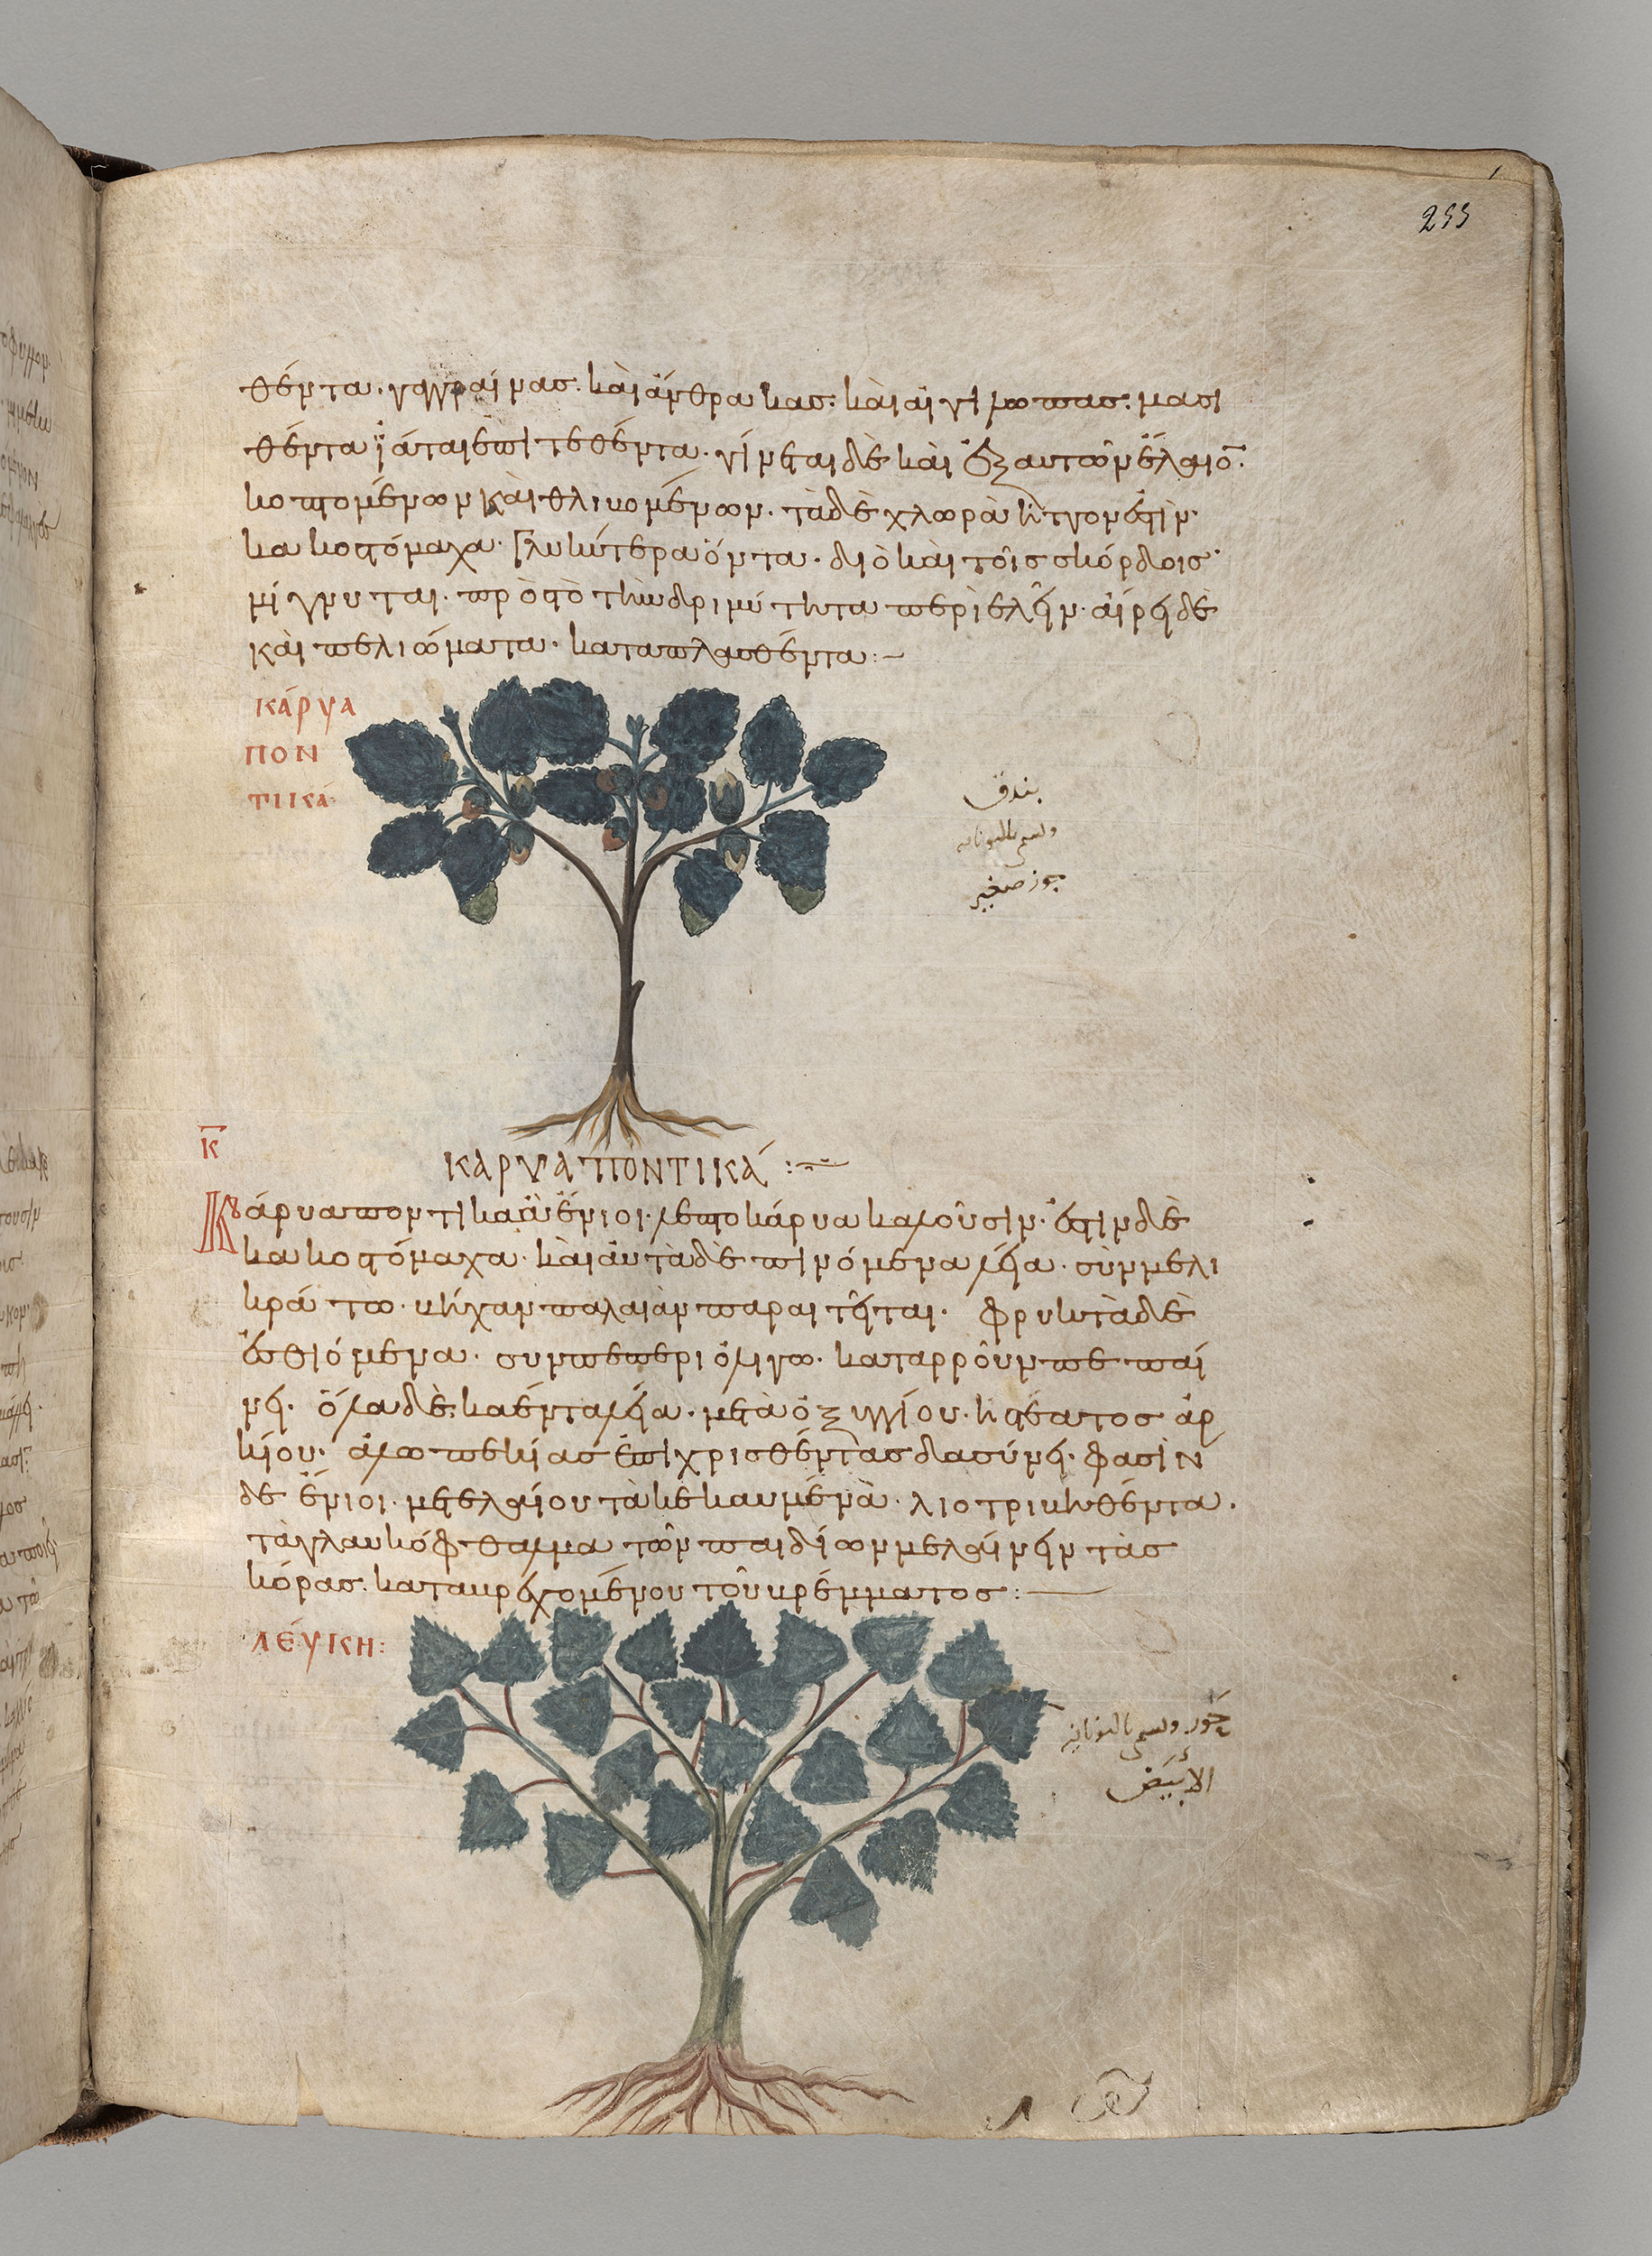 255
θέντα· γαγγραίνας· καὶ ἄνθρακας· καὶ αἰγίλωπας· μασι
θέντα ἰάται ἐπιτεθέντα· γίνεται δὲ καὶ ἐξ αυτῶν ἔλαιο̅·
κοπτομένων καὶ θλιβομένων· τὰ δὲ χλωρὰ ἧττον ἐστὶν
κακοστόμαχα· γλυκύτερα ὄντα· διὸ καὶ τοῖς σκόρδοις
μίγνυται· πρὸς τὸ τὴν δριμύτητα περιελεῖν· αἴρει δὲ
καὶ πελιώματα· καταπλασθέντα:–
ΚΆΡΥΑ
ΠΟΝ
ΤΙΚΆ·
بندق
وتسمى باليونانيه
جوز صغير
Κ̅
ΚΑΡΥΑ ΠΟΝΤΙΚΆ:~
Κάρυα ποντικα ἃ ἔνιοι· λεπτοκάρυα καλοῦσιν· ἐστὶν δὲ
κακοστόμαχα· καὶ αὐτὰ δὲ πινόμενα λεῖα· σὺν μελι
κράτω· βήχαν παλαιὰν παραιτεῖται· φρυκτὰ δὲ
ἐσθιόμενα· συν πεπερι ὀλίγω· καταρροῦν πεπαί
νει· ὅλα δὲ· καέντα λεῖα· μετὰ ὀξυγγίου· ἢ στέατος ἀρ
κίου· ἀλωπεκίας ἐπιχρισθέντας δασύνει· φασὶΝ
δε ἔνιοι· μετ ελαίου τὰ κεκαυμένα· λιοτριβηθέντα·
τὰ γλαυκόφθαλμα τῶν παιδίων μελαίνειν τὰς
κόρας· καταβρεχομένου τοῦ βρέμματος:–
ΛΕΎΚΗ:
حور وتسمى باليونانيه
الأبيض